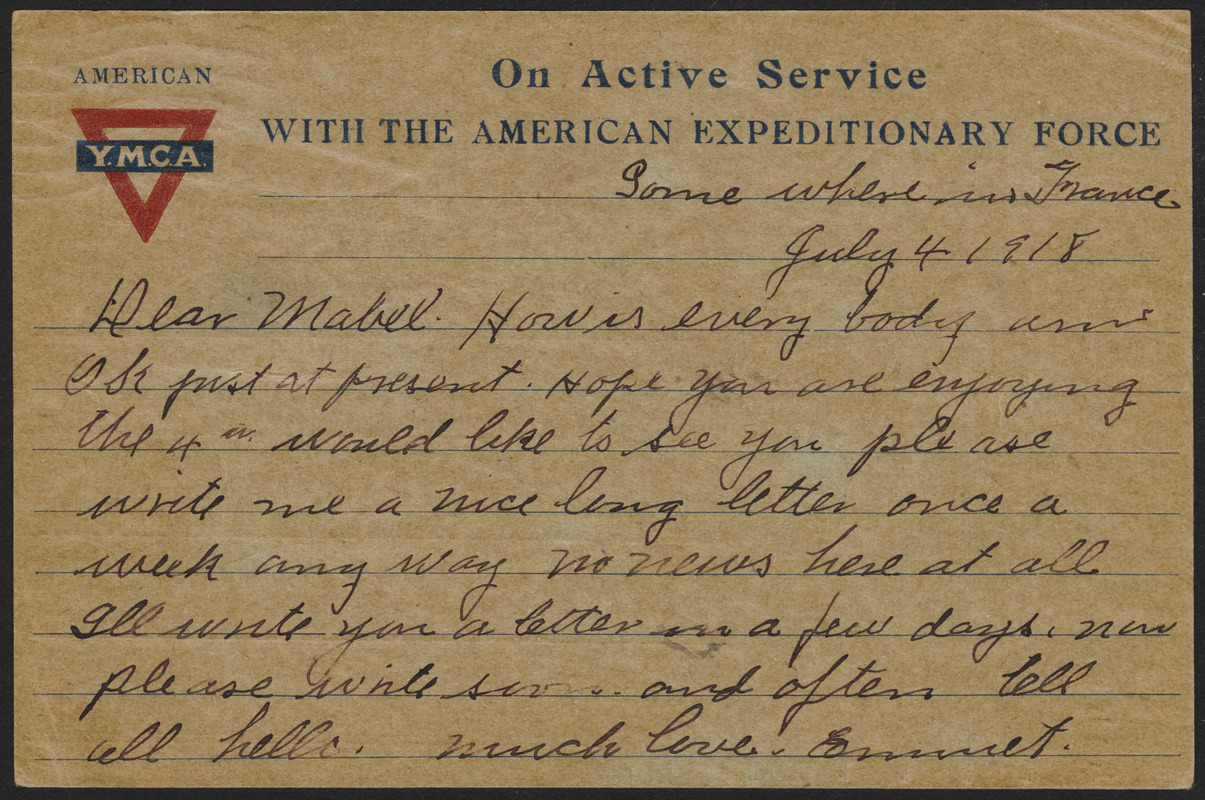 AMERICAN
Y.M.C.A.
On Active Service
WITH THE AMERICAN EXPEDITIONARY FORCE
Some where in France
July 4 1918
Dear Mabel. How is every body am
Ok just at present. Hope you are enjoying
the 4th would like to see you please
write me a nice long letter once a
week any way no news here at all
Ill write you a letter in a few days. now
please write soon. and often tell
all hello. much love. Emmet.